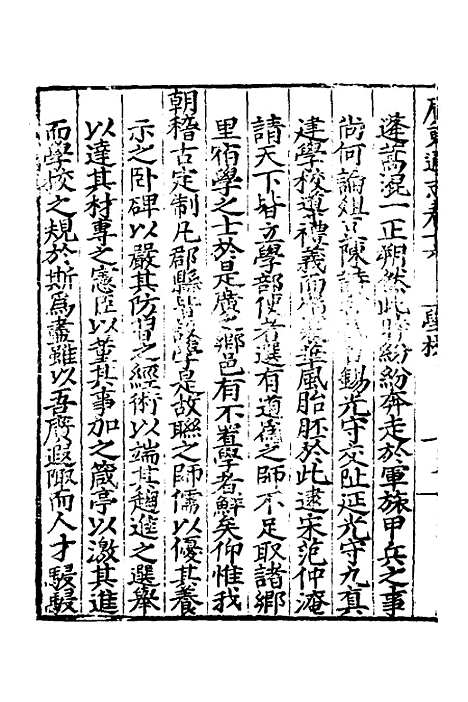 廣東通志卷十六 學校
蓬蒿混一正朔然此時紛紛奔走於軍旅甲兵之事
尚何論俎豆陳詩錫光守交阯延光守九真
建學校導禮義而華風胎胚於此逮宋范仲淹
請天下皆立學部使者選有道為之師不足取諸鄉
里宿學之士於是廣之鄉邑有不着學者鮮矣仰惟我
朝稽古定制凡郡縣皆設學是故聯之師儒以優其養
示之卧碑以嚴其防習之經術以端其趨進之選舉
以達其材專之憲臣以董其事加之箴亭以激其進
而學校之規於斯為盡雖以吾廣遐陬而人才駸駸